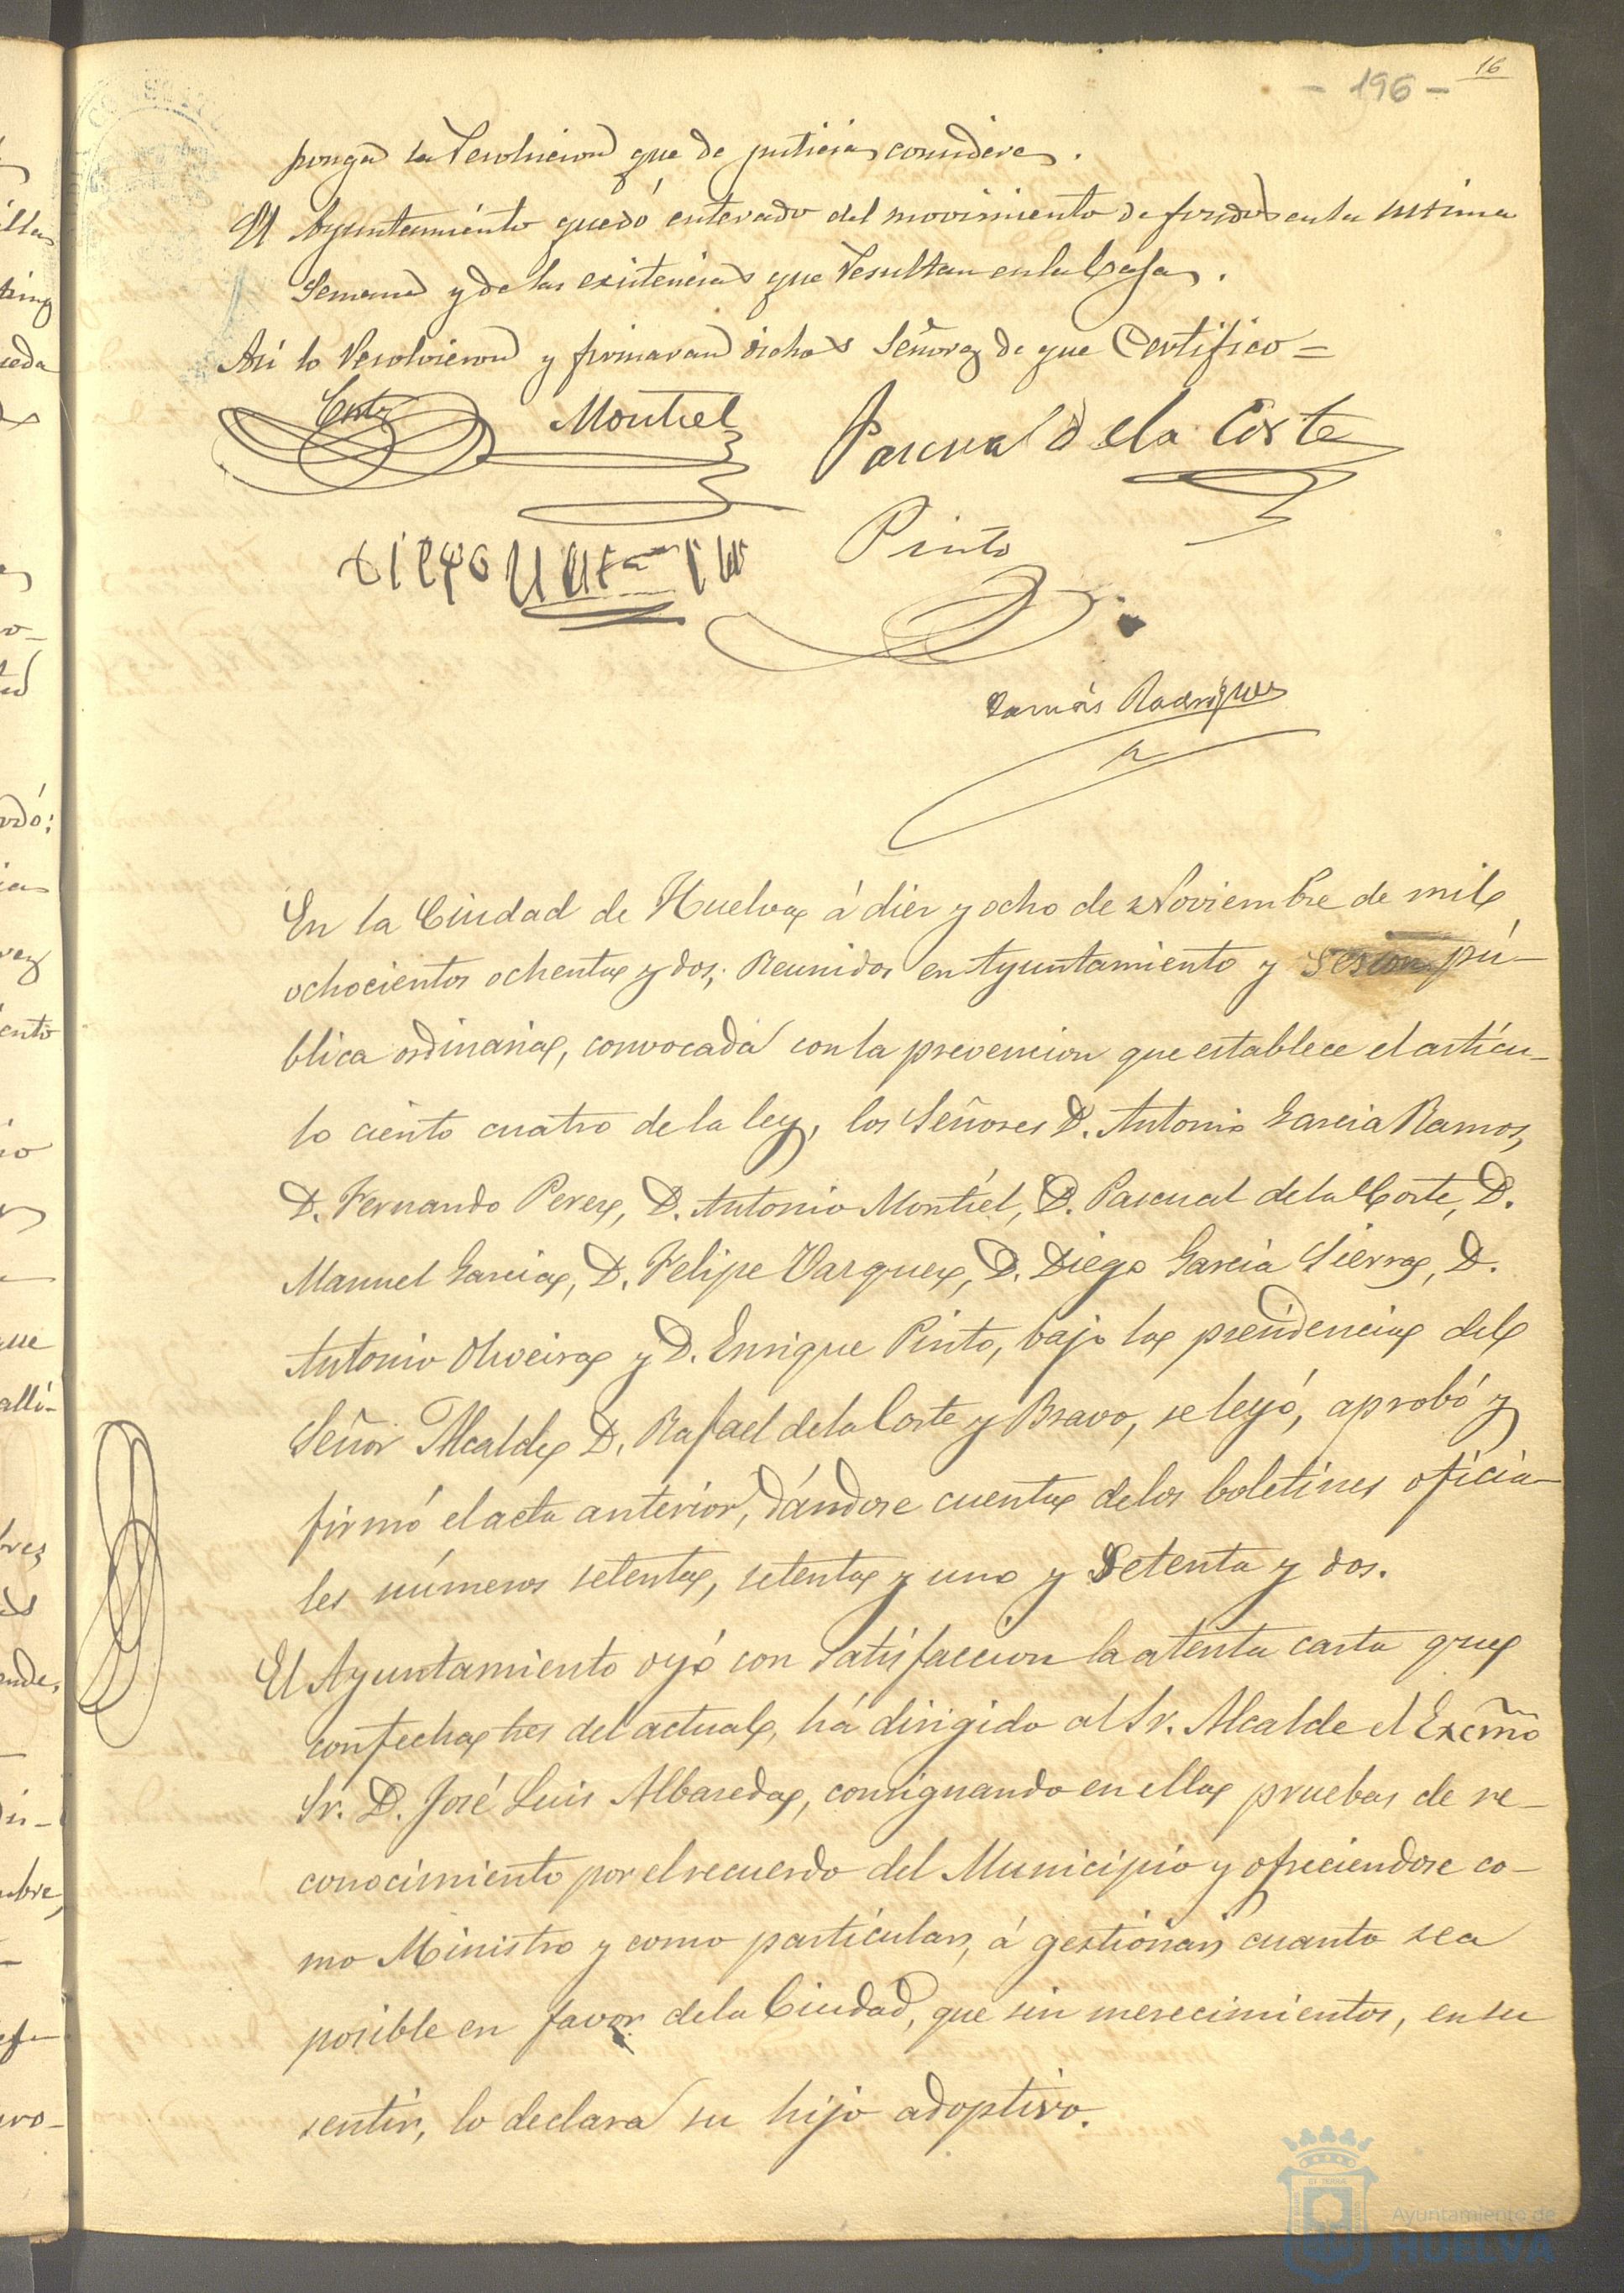 16
- 196 -
ponga la resolucion que de justicia considere.
El Ayuntamiento quedó enterado del movimiento de fondos en la última
Semana y de las existencias que resultan en la Caja.
Así lo resolvieron y firmaran dichos Señores de que Certifico =
Corte Montiel Pascual de la Corte
Pinto
Tomás Rodriguez
En la Ciudad de Huelva á diez y ocho de Noviembre de mil
ochocientos ochenta y dos; Reunidos en Ayuntamiento y Sesion pú-
blica ordinaria, convocada con la prevencion que establece el artícu-
lo ciento cuatro de la ley, los Señores D. Antonio Garcia Ramos,
D. Fernando Perez, D. Antonio Montiel, D. Pascual de la Corte, D.
Manuel Garcia, D. Felipe Vazquez, D. Diego Garcia Sierra, D.
Antonio Oliveira y D. Enrique Pinto, bajo la presidencia del
Señor Alcalde D. Rafael de la Corte y Bravo, se leyó, aprobó y
firmó el acta anterior, dándose cuenta de los boletines oficia-
les números setenta, setenta y uno y Setenta y dos.
El Ayuntamiento oyó con satisfaccion la atenta carta que
con fecha tres del actual, há dirigido al Sr. Alcalde el Excmõ
Sr. D. José Luis Albareda, consignando en ella pruebas de re-
conocimiento por el recuerdo del Municipio y ofreciendose co-
mo Ministro y como particular, á gestionar cuanto sea
posible en favor de la Ciudad, que sin merecimientos, en su
sentir, lo declara su hijo adoptivo.
Ayuntamiento de
HUELVA